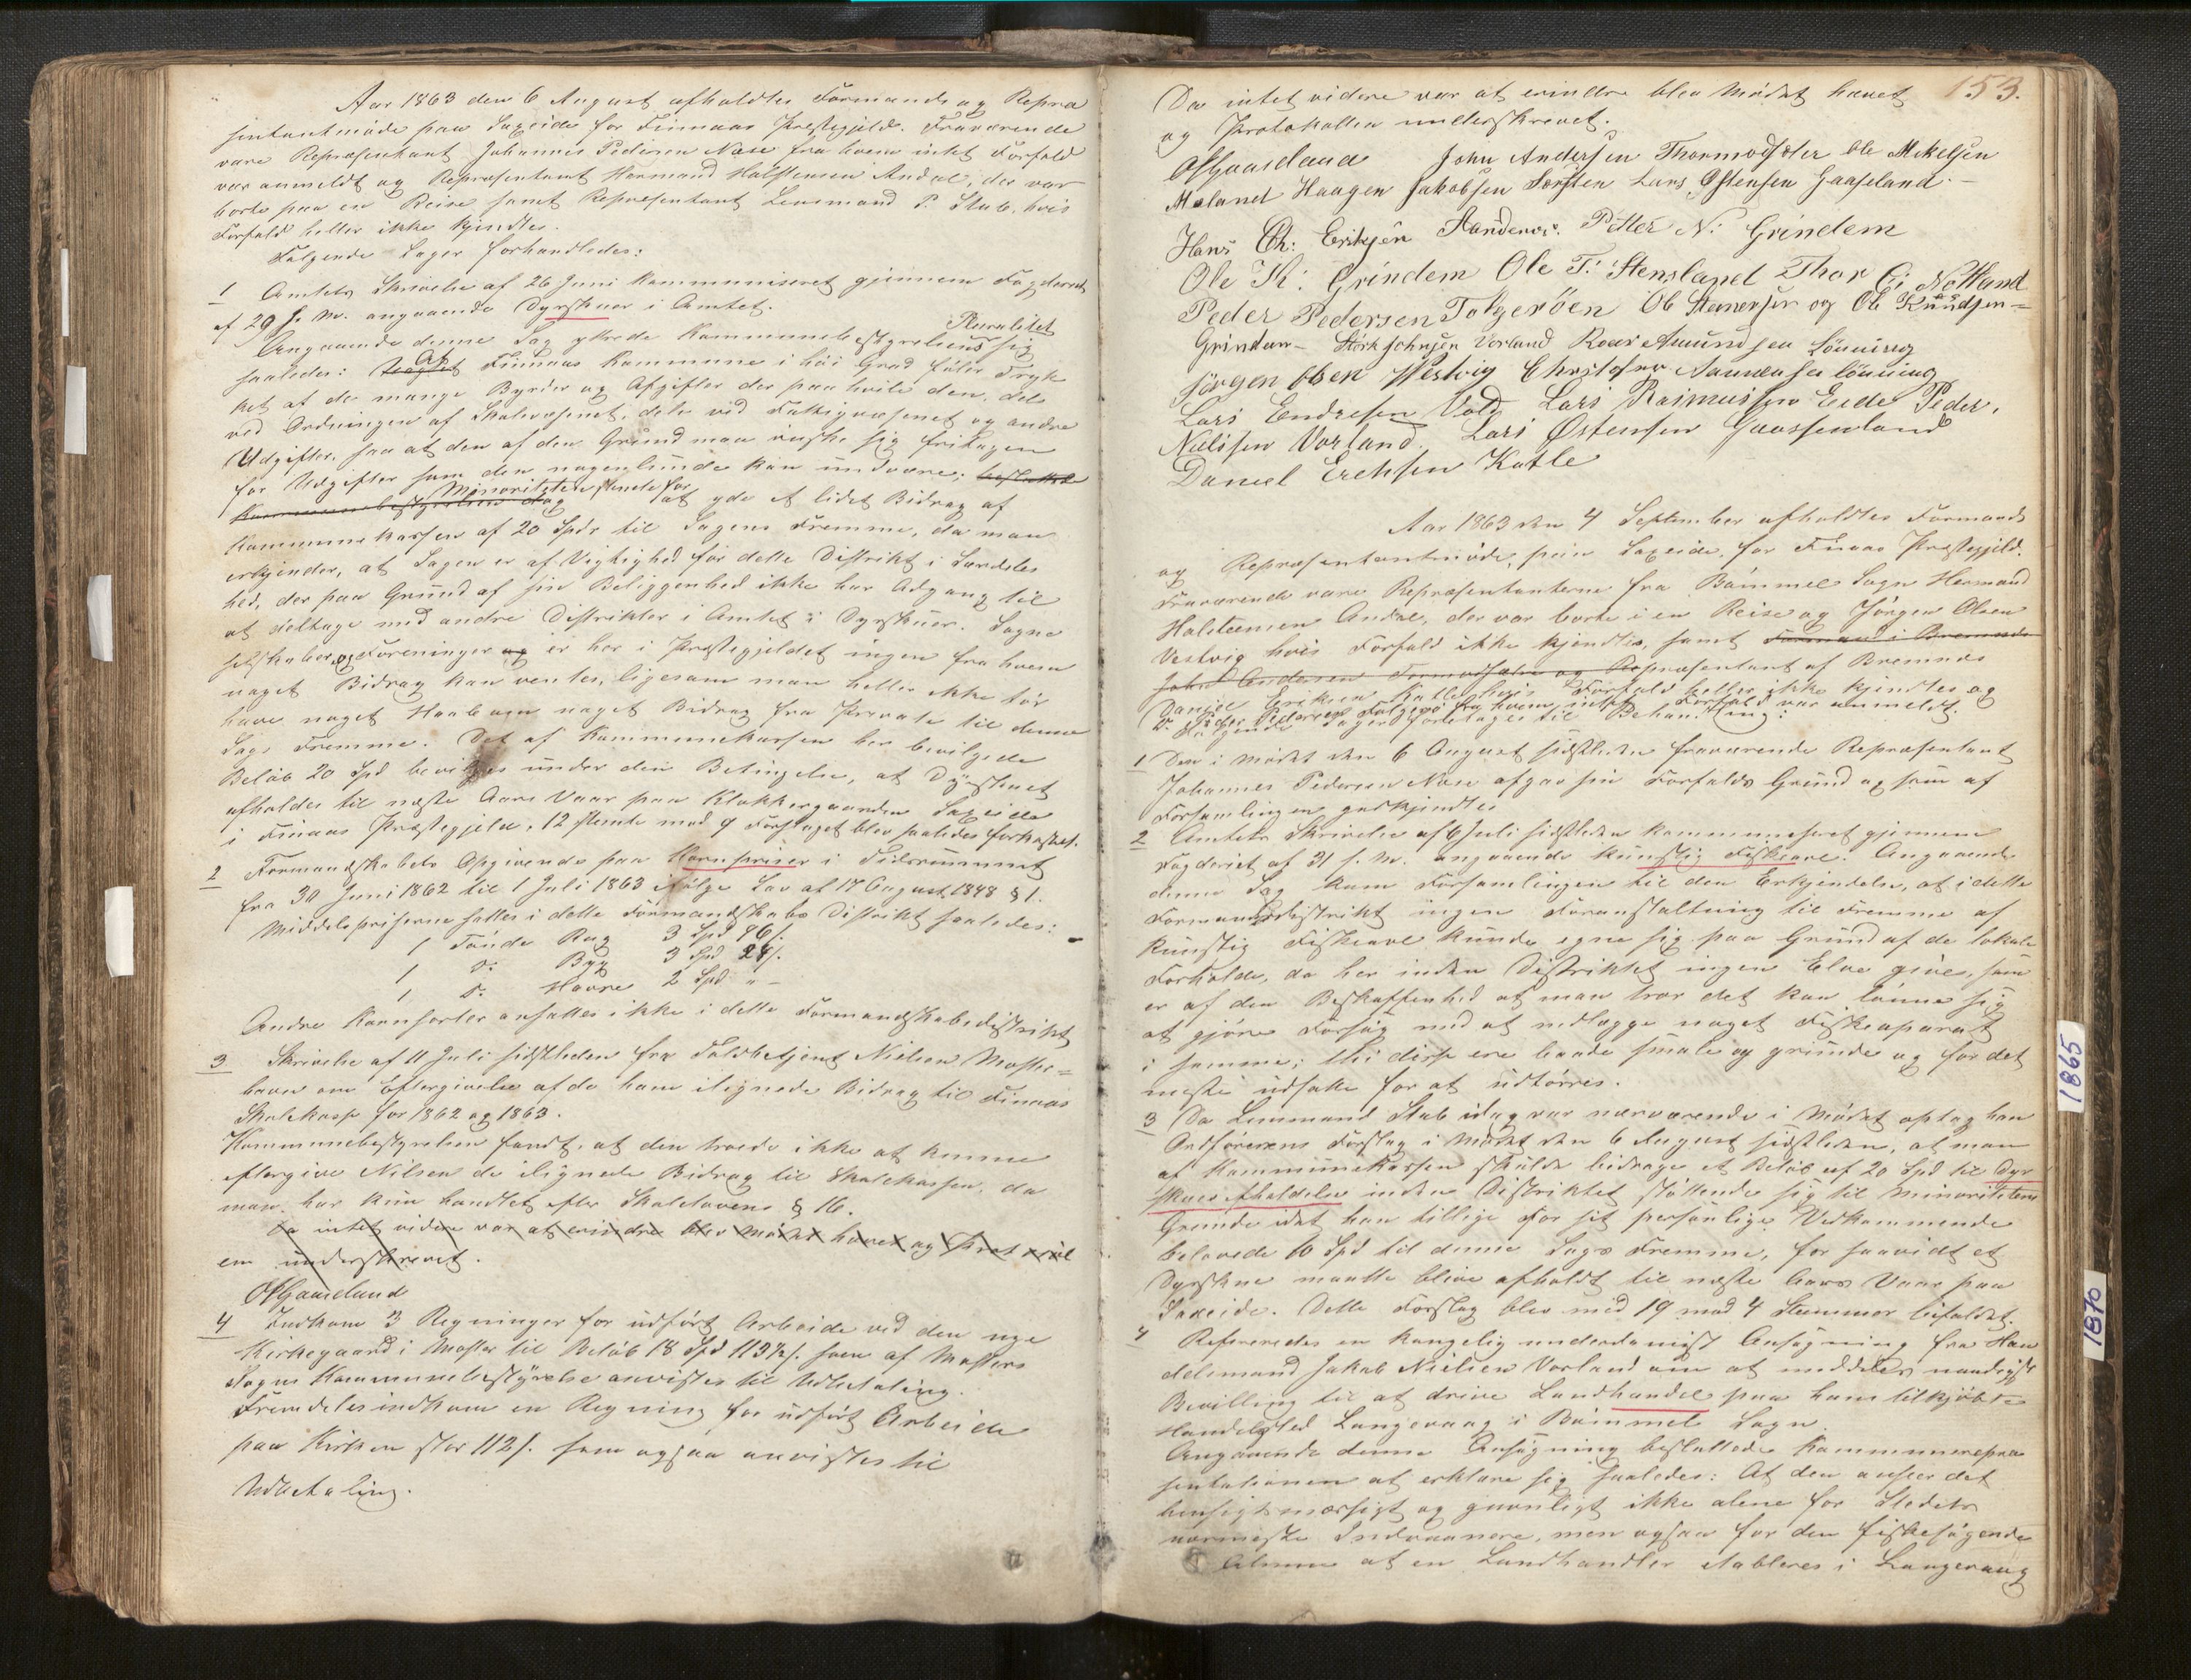 Aar 1863 den 6 August afholdtes Formands og Repræ
sentantmøde paa Saxeide for Finnaas Præstegjeld. Fraværende
vare Repræsentant Johannes Pedersen Næse fra hvem intet Forfald
var anmeldt og Repræsentant Hermand Halsteensen Andal, der var
borte paa en Reise samt Repræsentant Lensmand P. Stub, hvis
Forfald heller ikke kjendtes.
Følgende Sager forhandledes:
1 Amtets Skrivelse af 26 Juni kommuniseret gjennem Fogderiet
af 29 s. M. angaaende Dyrskuer i Amtet.
Angaaende denne Sag ytrede Kommunebestyrelsens Pluralitet sig
saaledes: At Finnaas Kommune i høi Grad føler Tryk
ket af de mange Byrder og Afgifter der paa hvile den, dels
ved Ordningen af Skolevæsenet, dels ved Fattigvæsenet og andre
Udgifter, saa at den af den Grund maa ønske sig fritagen
for Udgifter som den nogenlunde kan undvære; besluttede
Kommunebestyrelsen dog Minoriteten stemte for at yde et lidet Bidrag af
Kommunekassen af 20 Spdr til Sagens Fremme, da man
erkjender, at Sagen er af Vigtighed for dette Distrikt i Særdeles
hed, der paa Grund af sin Beliggenhed ikke har Adgang til
at deltage med andre Distrikter i Amtet i Dyrskuer. Sogne
selskaber og Foreninger og er her i Præstegjeldet ingen fra hvem
noget Bidrag kan ventes, ligesom man heller ikke tør
have noget Haab om noget Bidrag fra Private til denne
Sags Fremme. Det af Kommunekassen her bevilgede
Beløb 20 Spd bevilges under den Betingelse, at Dyrskuet
afholdes til næste Aars Vaar paa Klokkergaarden Saxeide
i Finnaas Præstegjeld. 12 stemte mod 9 Forslaget blev saaledes forkastet.
2 Formandskabets Opgivende paa Kornpriser i Tidsrummet
fra 30 Juni 1862 til 1 Juli 1863 ifølge Lov af 17 August 1848 § 1.
Middelspriserne sattes i dette Formandskabs Distrikt saaledes:
1 Tønde Rug 3 Spd 96 s.
1 do Byg 3 Spd 24 s.
1 do Havre 2 Spd " -
Andre Kornsorter ansattes ikke i dette Formandskabsdistrikt
3 Skrivelse af 11 Juli sidstleden fra Toldbetjent Nielsen Moster=
havn om Eftergivelse af de ham ilignede Bidrag til Finnaas
Skolekasse for 1862 og 1863.
Kommunebestyrelsen fandt, at den troede ikke at kunne
eftergive Nilsen de ilignede Bidrag til Skolekassen, da
man har kun handlet efter Skolelovens § 16.
Da intet videre var at erindre blev Mødet hævet og Protokol
en underskrevet.
OHGaaseland
4 Indkom 3 Regninger for udført Arbeide ved den nye
Kirkegaard i Moster til Beløb 18 Spd 113½ s. som af Mosters
Sogns Kommunebestyrelse anvistes til Udbetaling.
Fremdeles indkom en Regning for udført Arbeide
paa Kirken stor 112 s. som ogsaa anvistes til
Udbetaling.
153.
Da intet videre var at erindre blev Mødet hævet
og Protokollen underskrevet.
OHGaaseland John Andersen Thormodsæter Ole Mikelsen
Meland Haagen Jakobsen Sørsten Lars Østensen Gaaseland.
Hans Ch: Eriksen Petter N: Grindem
Ole Th: Grindem Ole T: Stensland Thor Nesland
Peder Pedersen Folgerøen Ole Stenersen og Ole Knudsen=
Grindem Størk Johnsen Vorland Roar Amundsen Lønning
Jørgen Olsen Vestvig Christofer Lønning
Lars Endresen Vold Lars Rasmussen Eide Peder
Nielsen Vorland. Lars Østensen Gaasseland
Daniel Erchsen Katle
Aar 1863 den 4 September afholdtes Formands
og Repræsentantmøde, paa Saxeide, for Finaas Præstegjeld.
Fraværende vare Repræsentanterne fra Bømmel Sogn Hermand
Halsteensen Andal, der var borte i en Reise og Jørgen Olsen
Vestvig hvis Forfald ikke kjendtes, samt Formand i Bremnes
John Andersen Tormodsæter og Repræsentant af Bremnes
Daniel Eriksen Katle hvis Forfald heller ikke kjendtes og
Do Peder Pedersen Folgerø fra hvem intet Forfald var anmeldt.
Følgende Sager foretoges til Behandling:
1 Den i Mødet den 6 August sidstleden fraværende Repræsentant
Johannes Pedersen Næse afgav sin Forfalds Grund og som af
Forsamlingen godkjendtes
2 Amtets Skrivelse af 6 Juli sidstleden kommuniseret gjennem
Fogderiet af 31 s. M. angaaende kunstig Fiskeavl. Angaaende
denne Sag kom Forsamlingen til den Erkjendelse, at i dette
Formandsdistrikt ingen Foranstaltning til Fremme af
kunstig Fiskeavl kunde egne sig paa Grund af de lokale
Forholde, da her inden Distriktet ingen Elve gives, som
er af den Beskaffenhed at man tror det kan lønne sig
at gjøre Forsøg med at nedlægge noget Fiskeaparat
i samme; thi disse ere baade smale og grunde og for det
meste udsatte for at udtørres.
3 Da Lensmand Stub idag var nærværende i Mødet optog han
Ordførerens Forslag i Mødet den 6 August sidstleden, at man
af Kommunekassen skulde bidrage et Beløb af 20 Spd til Dyr
skues Afholdelse inden Distriktet støttende sig til Minoritetens
Grunde idet han tillige for sit personlige Vedkommende
belovede 10 Spd til denne Sags Fremme, for saavidt et
Dyrskue maatte blive afholdt til næste Aars Vaar paa
Saxeide. Dette Forslag blev med 19 mod 4 Stemmer bifaldet.
4 Refereredes en kongelig underdanigst Ansøgning fra Han
delsmand Jakob Nielsen Vorland om at meddeles naadigst
Bevilling til at drive Landhandel paa hans tilkjøbte
Handelssted Langevaag i Bømmel Sogn
Angaaende denne Ansøgning besluttede Kommunerepræ
sentationen at erklære sig saaledes: At den anseer det
hensigtsmæssigt og gavnligt ikke alene for Stedets
nærmeste Indvaanere, men ogsaa for den fiskesøgende
Almue at en Landhandler etableres i Langevaag
1865
1870